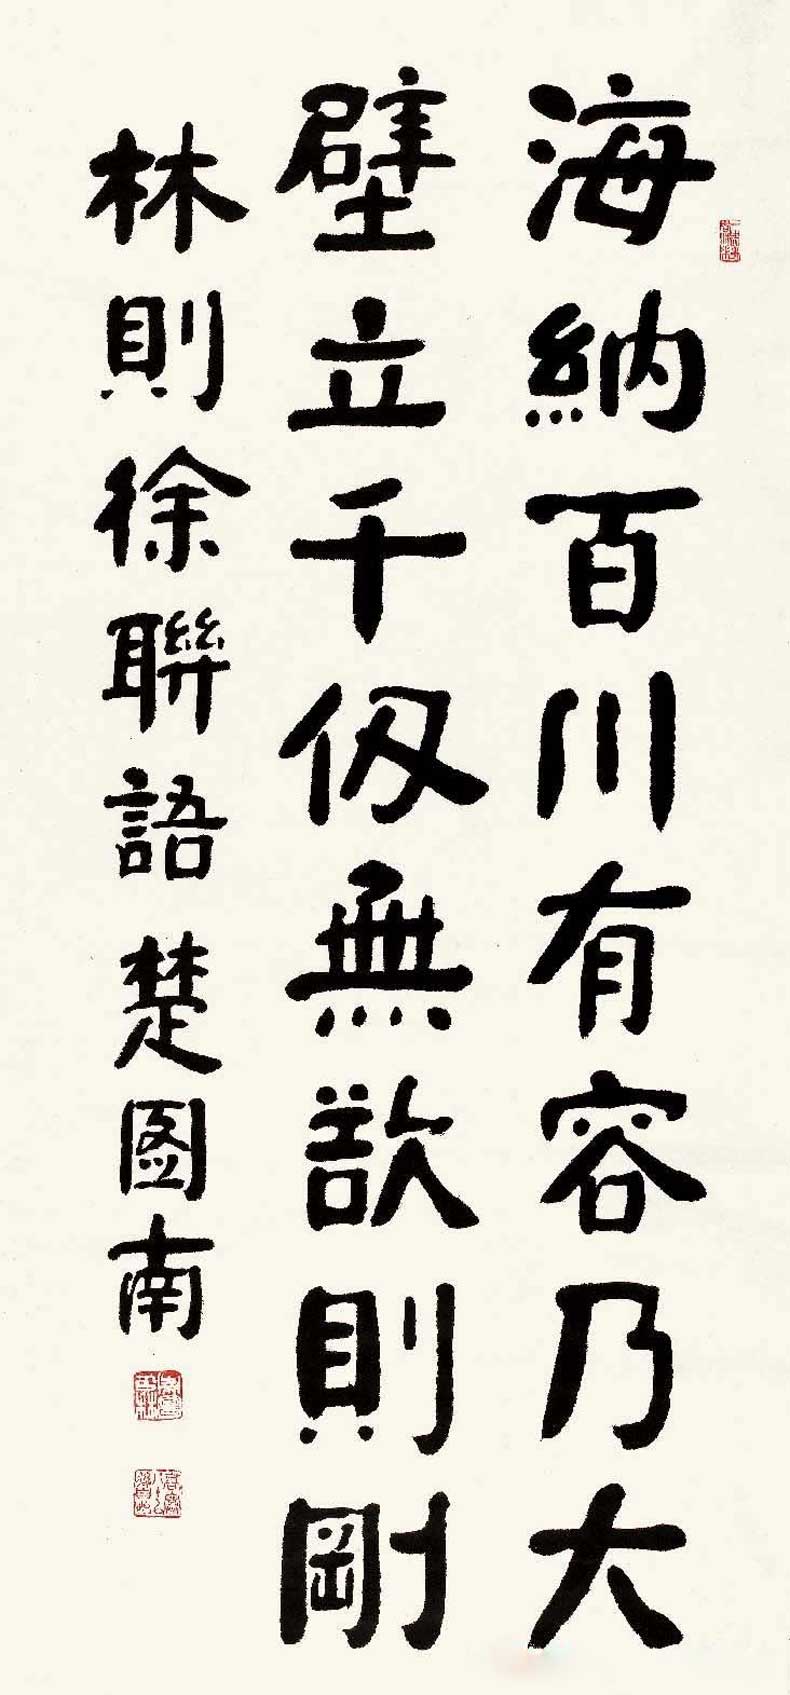 海納百川有容乃大
壁立千仞無欲則剛
林則徐聯語 楚图南